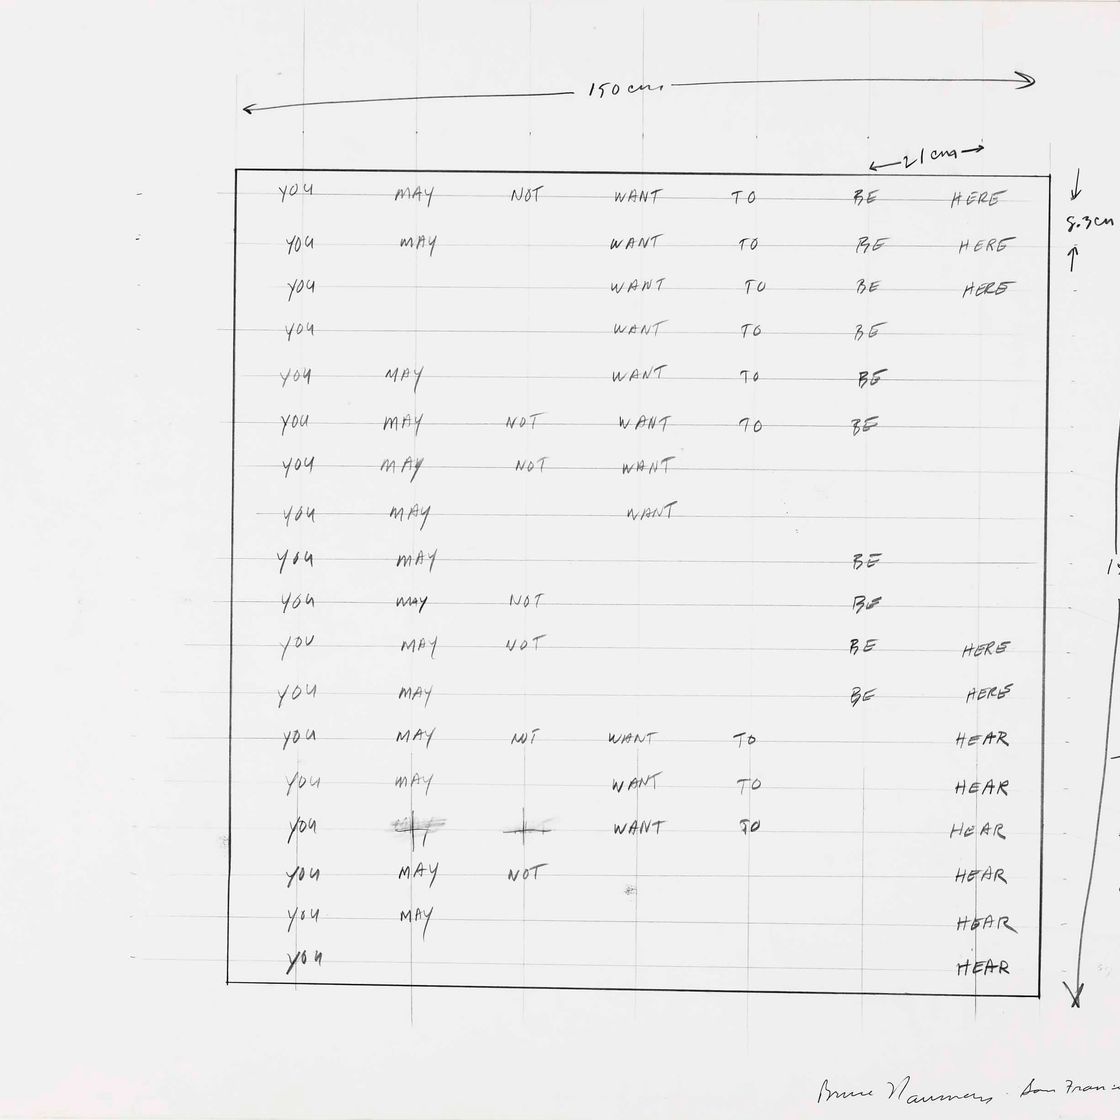 150 cm
21 cm
YOU MAY NOT WANT TO BE HERE
8.3 cm
YOU MAY WANT TO BE HERE
YOU WANT TO BE HERE
YOU WANT TO BE
YOU MAY WANT TO BE
YOU MAY NOT WANT TO BE
YOU MAY NOT WANT
YOU MAY WANT
YOU MAY BE
YOU MAY NOT BE
YOU MAY NOT BE HERE
YOU MAY BE HERE
YOU MAY NOT WANT TO HEAR
YOU MAY WANT TO HEAR
YOU WANT TO HEAR
YOU MAY NOT HEAR
YOU MAY HEAR
YOU HEAR
Bruce Nauman San